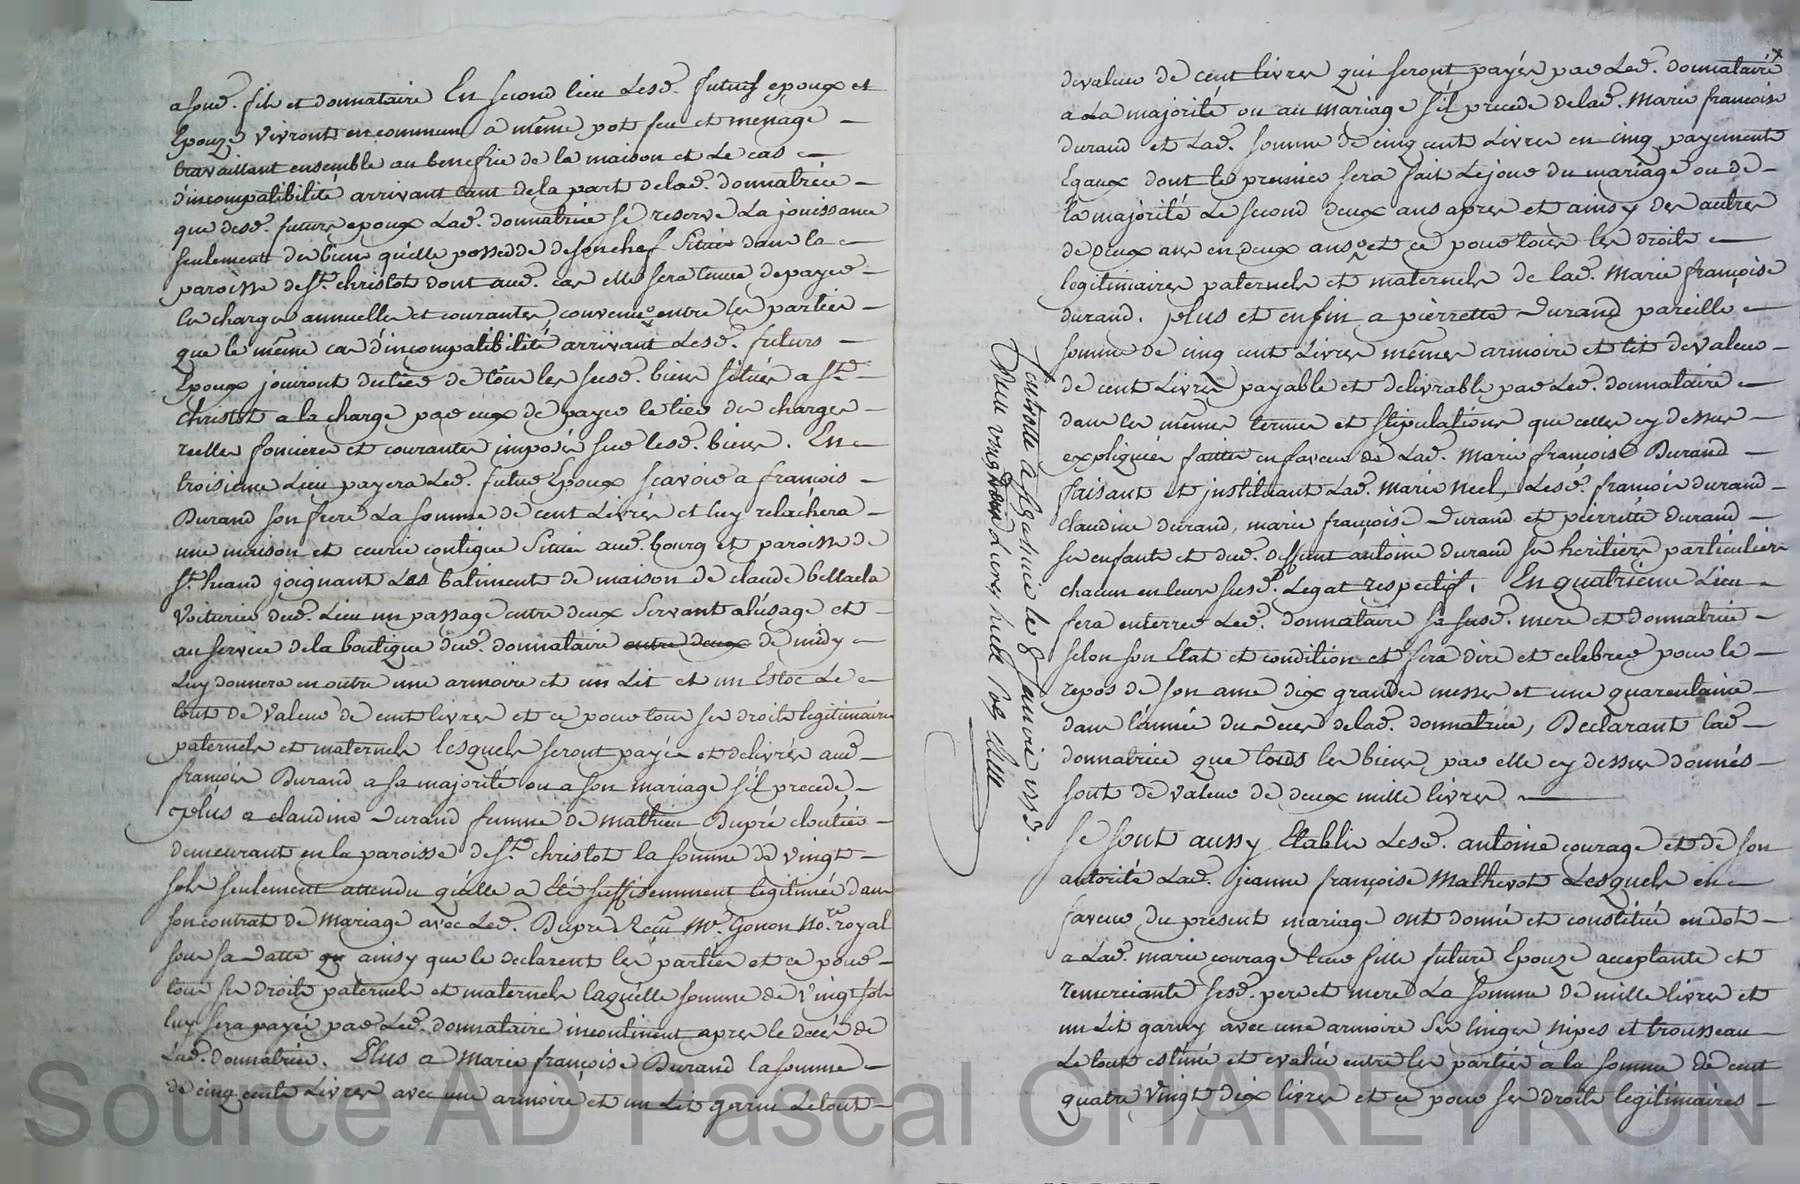 asond. fils et donnataire En second lieu lesd. futurs epoux et
Epouze vivront en commun a même pot feu et menage
travaillant ensemble au benefice de la maison et le cas
d'incompatibilité arrivant tant de la part de lad. donnatrice
que desd. futurs epoux Lad. donnatrice se reserve La jouissance
seulement des biens qu'elle possedde de son chef Situés dans la
paroisse de St. christot dont aud. cas elle sera tenue de payer
les charges annuelles et courantes, convenu entre les parties
que le même cas d'incompatibilité arrivant Lesd. futurs
Epoux jouiront du tiers de tous les susd. biens situés a St.
christot a la charge par eux de payer le tiers des charges
reelles foncieres et courantes imposés sur lesd. biens. En
troisieme Lieu payera Led. futur Epoux scavoir a françois
Durand son frere La somme de cent Livres et luy relachera
une maison et ecurie contigue Située aud. bourg et paroisse de
St. heand joignant Les batiments de maison de claude bellacla
Voiturier dud. Lieu un passage entre deux Servant a l'usage et
au service de la boutique dud. donnataire entre deux de midy
Luy donnera en outre une armoire et un Lit et un Estoc Le
tout de Valeur de cent livres et ce pour tous ses droits legitimaires
paternels et maternels lesquels seront payés et delivrés aud.
françois Durand a sa majorité ou a son mariage s'il precede
plus a claudine Durand femme de Mathieu Dupré cloutier
demeurant en la paroisse de St. christot la somme de vingt
sols seulement attendu qu'elle a été suffisemment legitimée dans
son contrat de Mariage avec Led. Dupré Recu Me. Gonon No.re royal
sous sa datte ainsy que le declarent les parties et ce pour
tous ses droits paternels et maternels laquelle somme de Vingt sols
luy sera payée par Led. donnataire incontinent apres le decés de
Lad. donnatrice. Plus a Marie françoise Durand la somme
de cinq cents Livres avec une armoire et un Lit garni Le tout
devaleur de cent livres qui seront payés par Led. donnataire
a La majorité ou au mariage s'il precede de lad. Marie françoise
durand et Lad. somme de cinq cent Livres en cinq payements
Egaux dont le premier sera fait Le jour du mariage ou de
la majorité Le second deux ans apres et ainsy des autres
de deux ans en deux ans et ce pour tous les droits
legitimaires paternels et maternels de lad. Marie françoise
durand. plus et enfin a pierrette Durand pareille
somme de cinq cent Livres mêmes armoire et lit de valeur
de cent Livres payable et delivrable par Led. donnataire
dans les mêmes termes et stipulations que celles cy dessus
expliquées faittes en faveur de Lad. Marie françoise Durand
faisant et instituant Lad. Marie Neel, Lesd. françois durand
claudine durand, marie françoise Durand et pierrette durand
ses enfants et dud. deffunt antoine durand ses heritiers particuliers
chacun en leurs susd. Legat respectif. En quatrieme Lieu
fera enterrer Led. donnataire sa susd. mere et donnatrice
selon son Etat et condition et fera dire et celebrer pour le
repos de son ame dix grandes messes et une quarentaine
dans l'année du deces de lad. donnatrice, Declarant lad.
donnatrice que tous les biens par elle cy dessus donnés
sont de valeur de deux mille livres
Se sont aussy Etablis Lesd. antoine courage et de son
autorité Lad. jeanne françoise Mathevot Lesquels en
faveur du present mariage ont donné et constitué en dot
a Lad. marie courage leur fille future Epouze acceptante et
remerciante sesd. pere et mere La somme de mille livres et
un Lit garny avec une armoire Ses linges nipes et trousseau
Le tout estimé et evalué entre les parties a la somme de cent
quatre Vingt dix livres et ce pour ses droits legitimaires
Source AD Pascal CHAREYRON